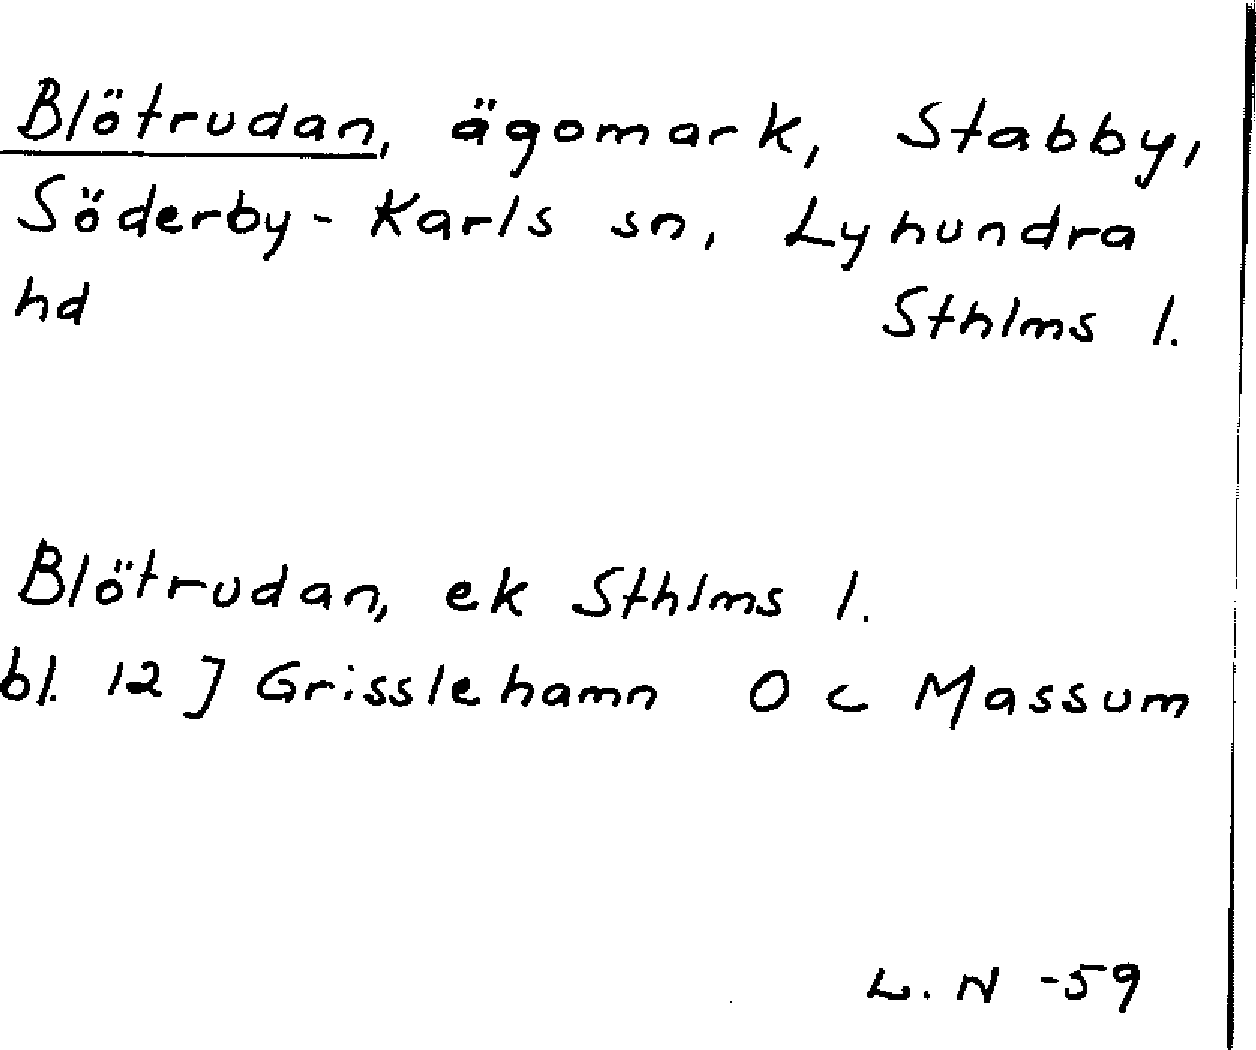 Blötrudan, ägomark, Stabby,
Söderby-Karls sn, Lyhundra
hd Sthlms l.
Blötrudan, ek Sthlms l.
bl. 12 J Grisslehamn O c Massum
L. N -59